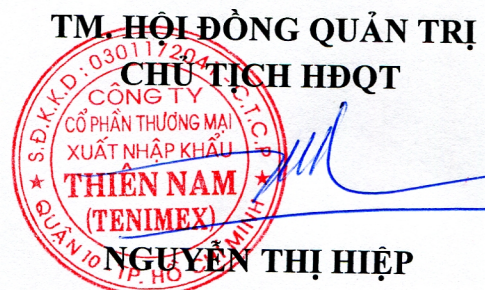 TM. HỘI ĐỒNG QUẢN TRỊ
CHỦ TỊCH HĐQT
CÔNG TY
CỔ PHẦN THƯƠNG MẠI
XUẤT NHẬP KHẨU
THIÊN NAM
(TENIMEX)
QUẬN 10 TP. HỒ CHÍ MINH
NGUYỄN THỊ HIỆP